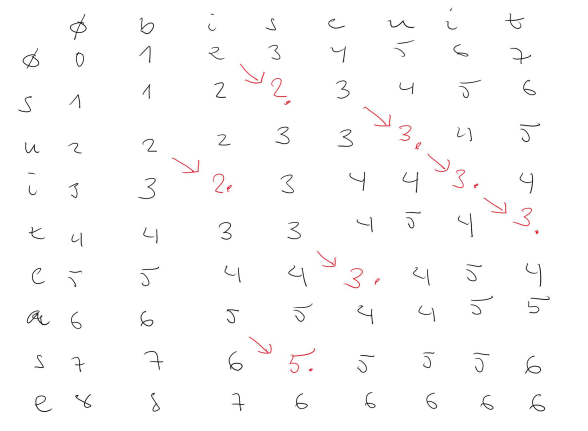 ∅ b i s c u i t
∅ 0 1 2 3 4 5 6 7
s 1 1 2 2. 3 4 5 6
u 2 2 2 3 3 3. 4 5
i 3 3 2. 3 4 4 3. 4
t 4 4 3 3 4 5 4 3.
c 5 5 4 4 3. 4 5 4
a 6 6 5 5 4 4 5 5
s 7 7 6 5. 5 5 5 6
e 8 8 7 6 6 6 6 6